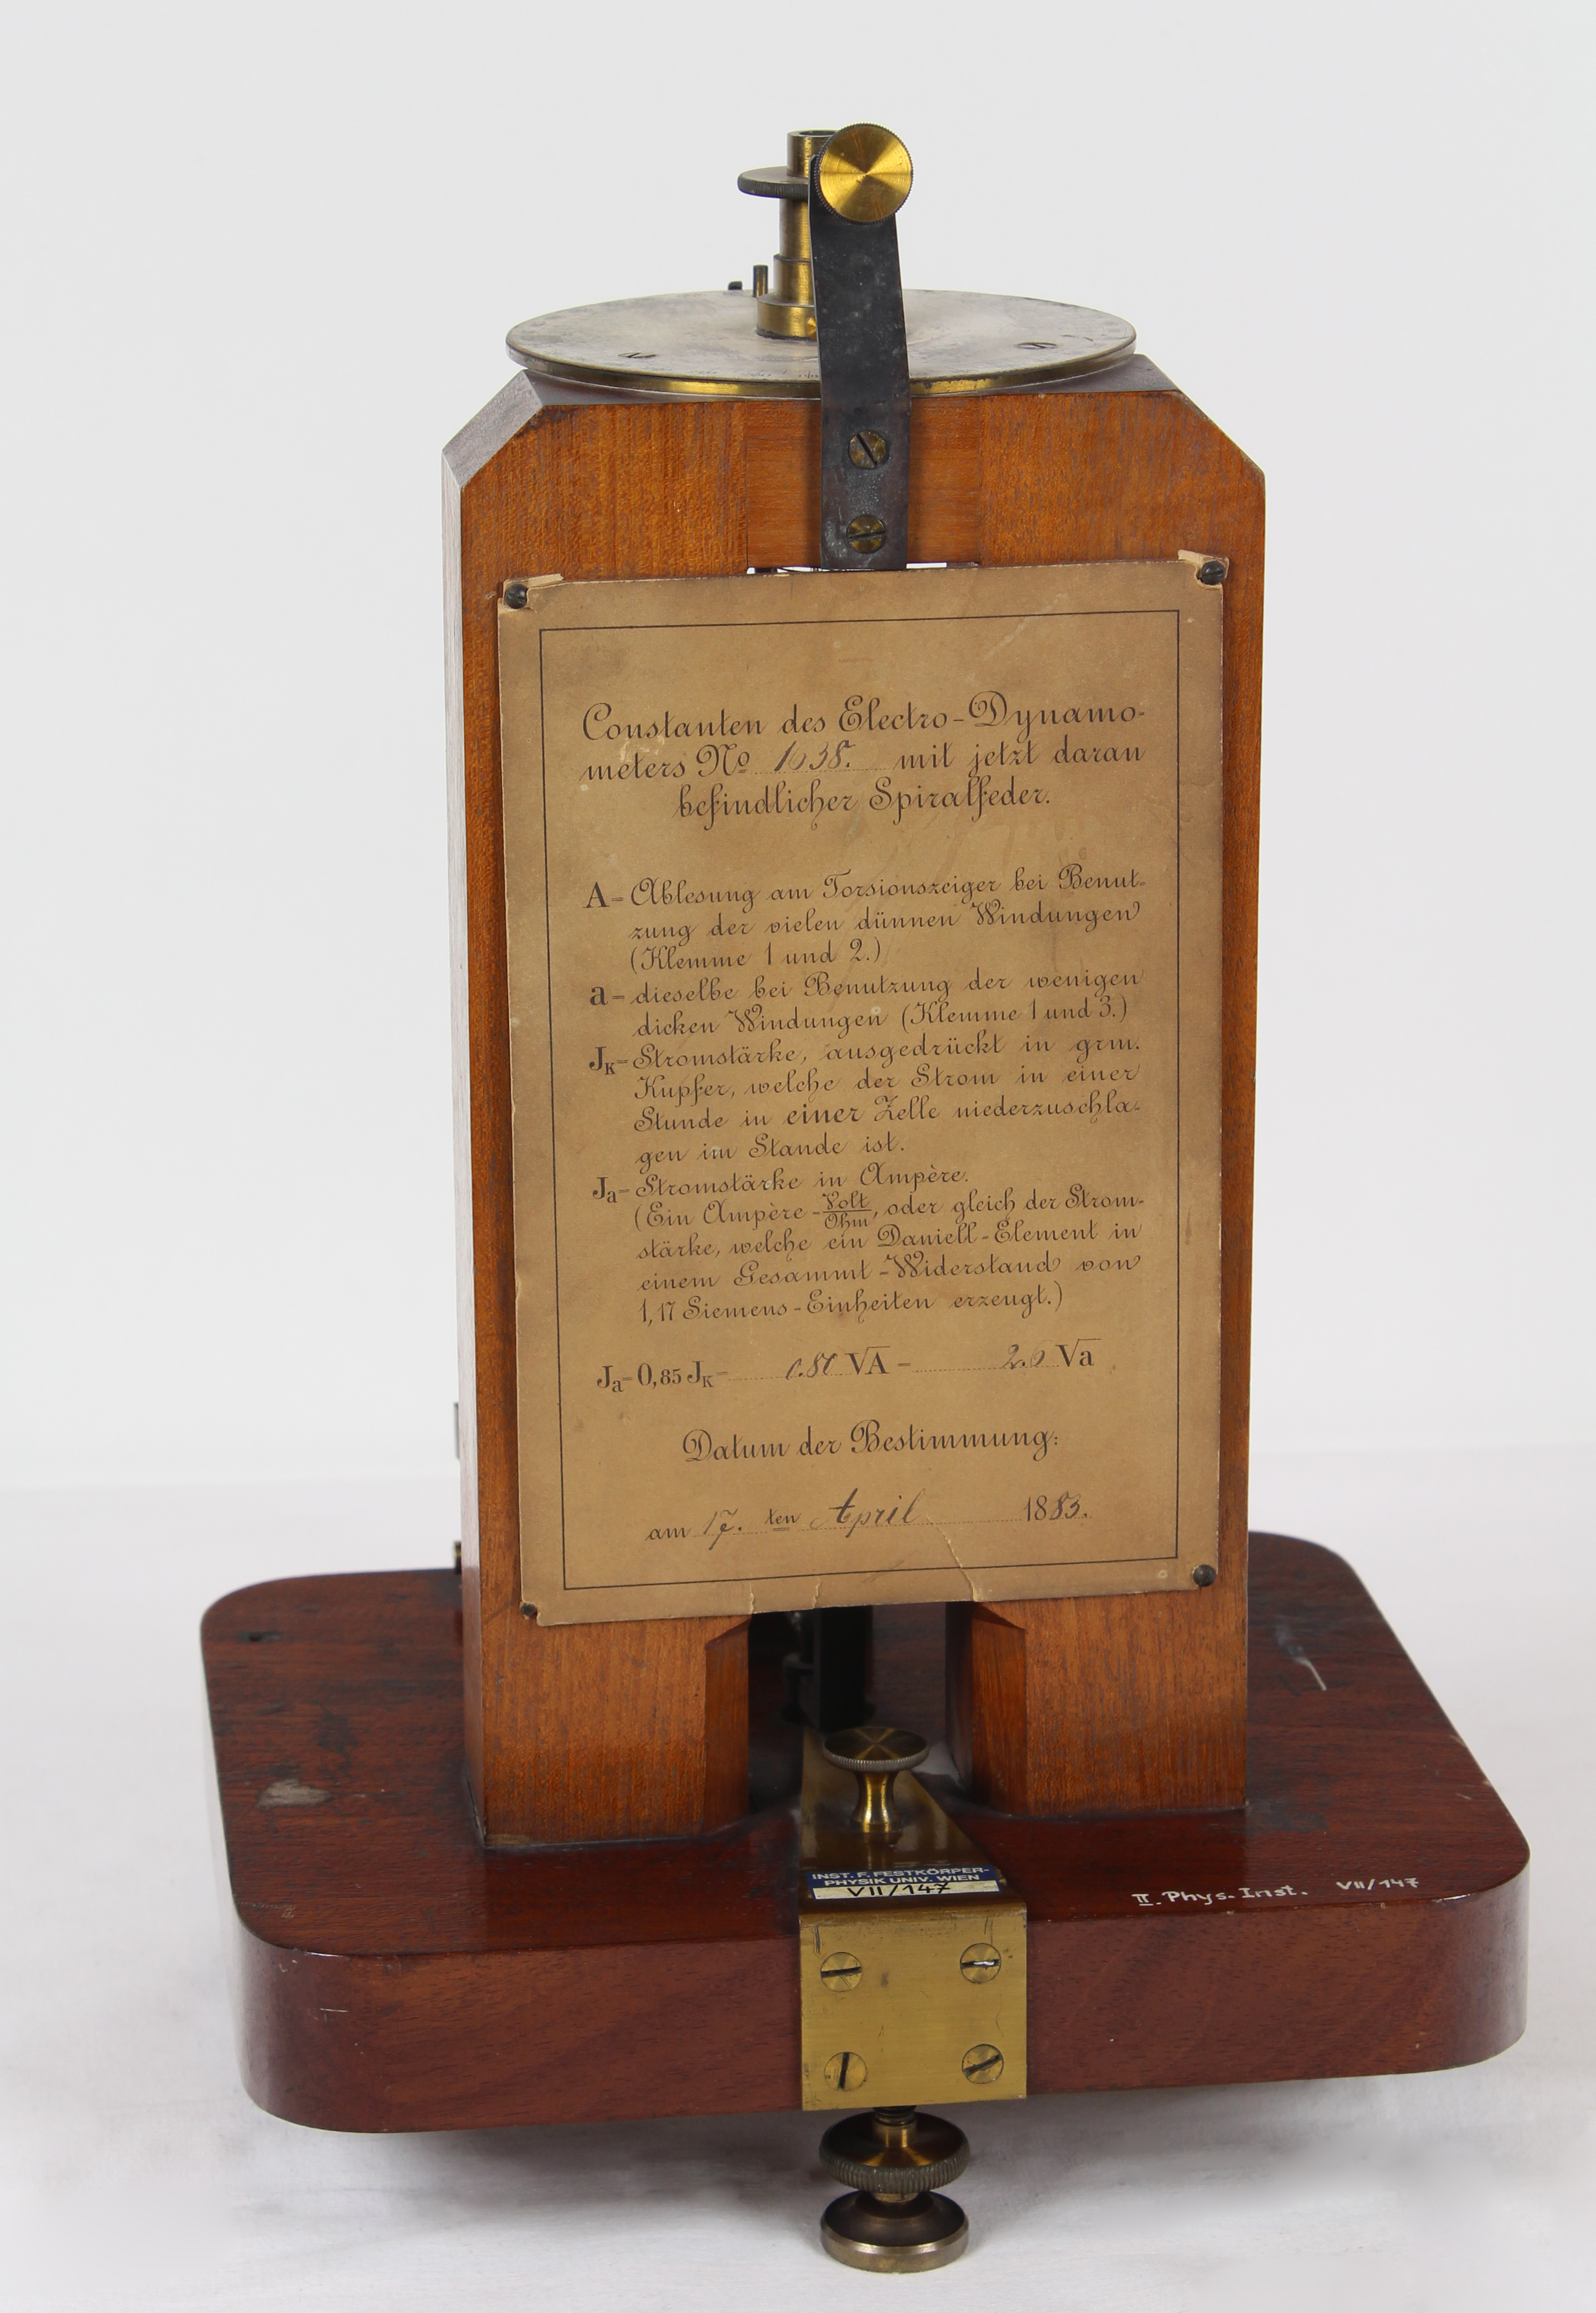 Constanten des Electro-Dynamo-
meters No 1638. mit jetzt daran
befindlicher Spiralfeder.
A=Ablesung am Torsionszeiger bei Benut-
zung der vielen dünnen Windungen
(Klemme 1 und 2.)
a=dieselbe bei Benutzung der wenigen
dicken Windungen (Klemme 1 und 3.)
JK=Stromstärke, ausgedrückt in grm.
Kupfer, welche der Strom in einer
Stunde in einer Zelle niederzuschla-
gen im Stande ist.
Ja=Stromstärke in Ampère.
(Ein Ampère=Volt/Ohm, oder gleich der Strom-
stärke, welche ein Daniell-Element in
einem Gesammt-Widerstand von
1,17 Siemens-Einheiten erzeugt.)
Ja=0,85 JK= √A= √a
Datum der Bestimmung:
am 17. ten April 1883.
INST. F. FESTKÖRPER-
PHYSIK UNIV. WIEN
VII/147
II. Phys. Inst. VII/147